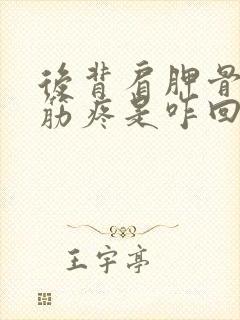 後背肩胛骨
筋疼是咋回
王宇亭